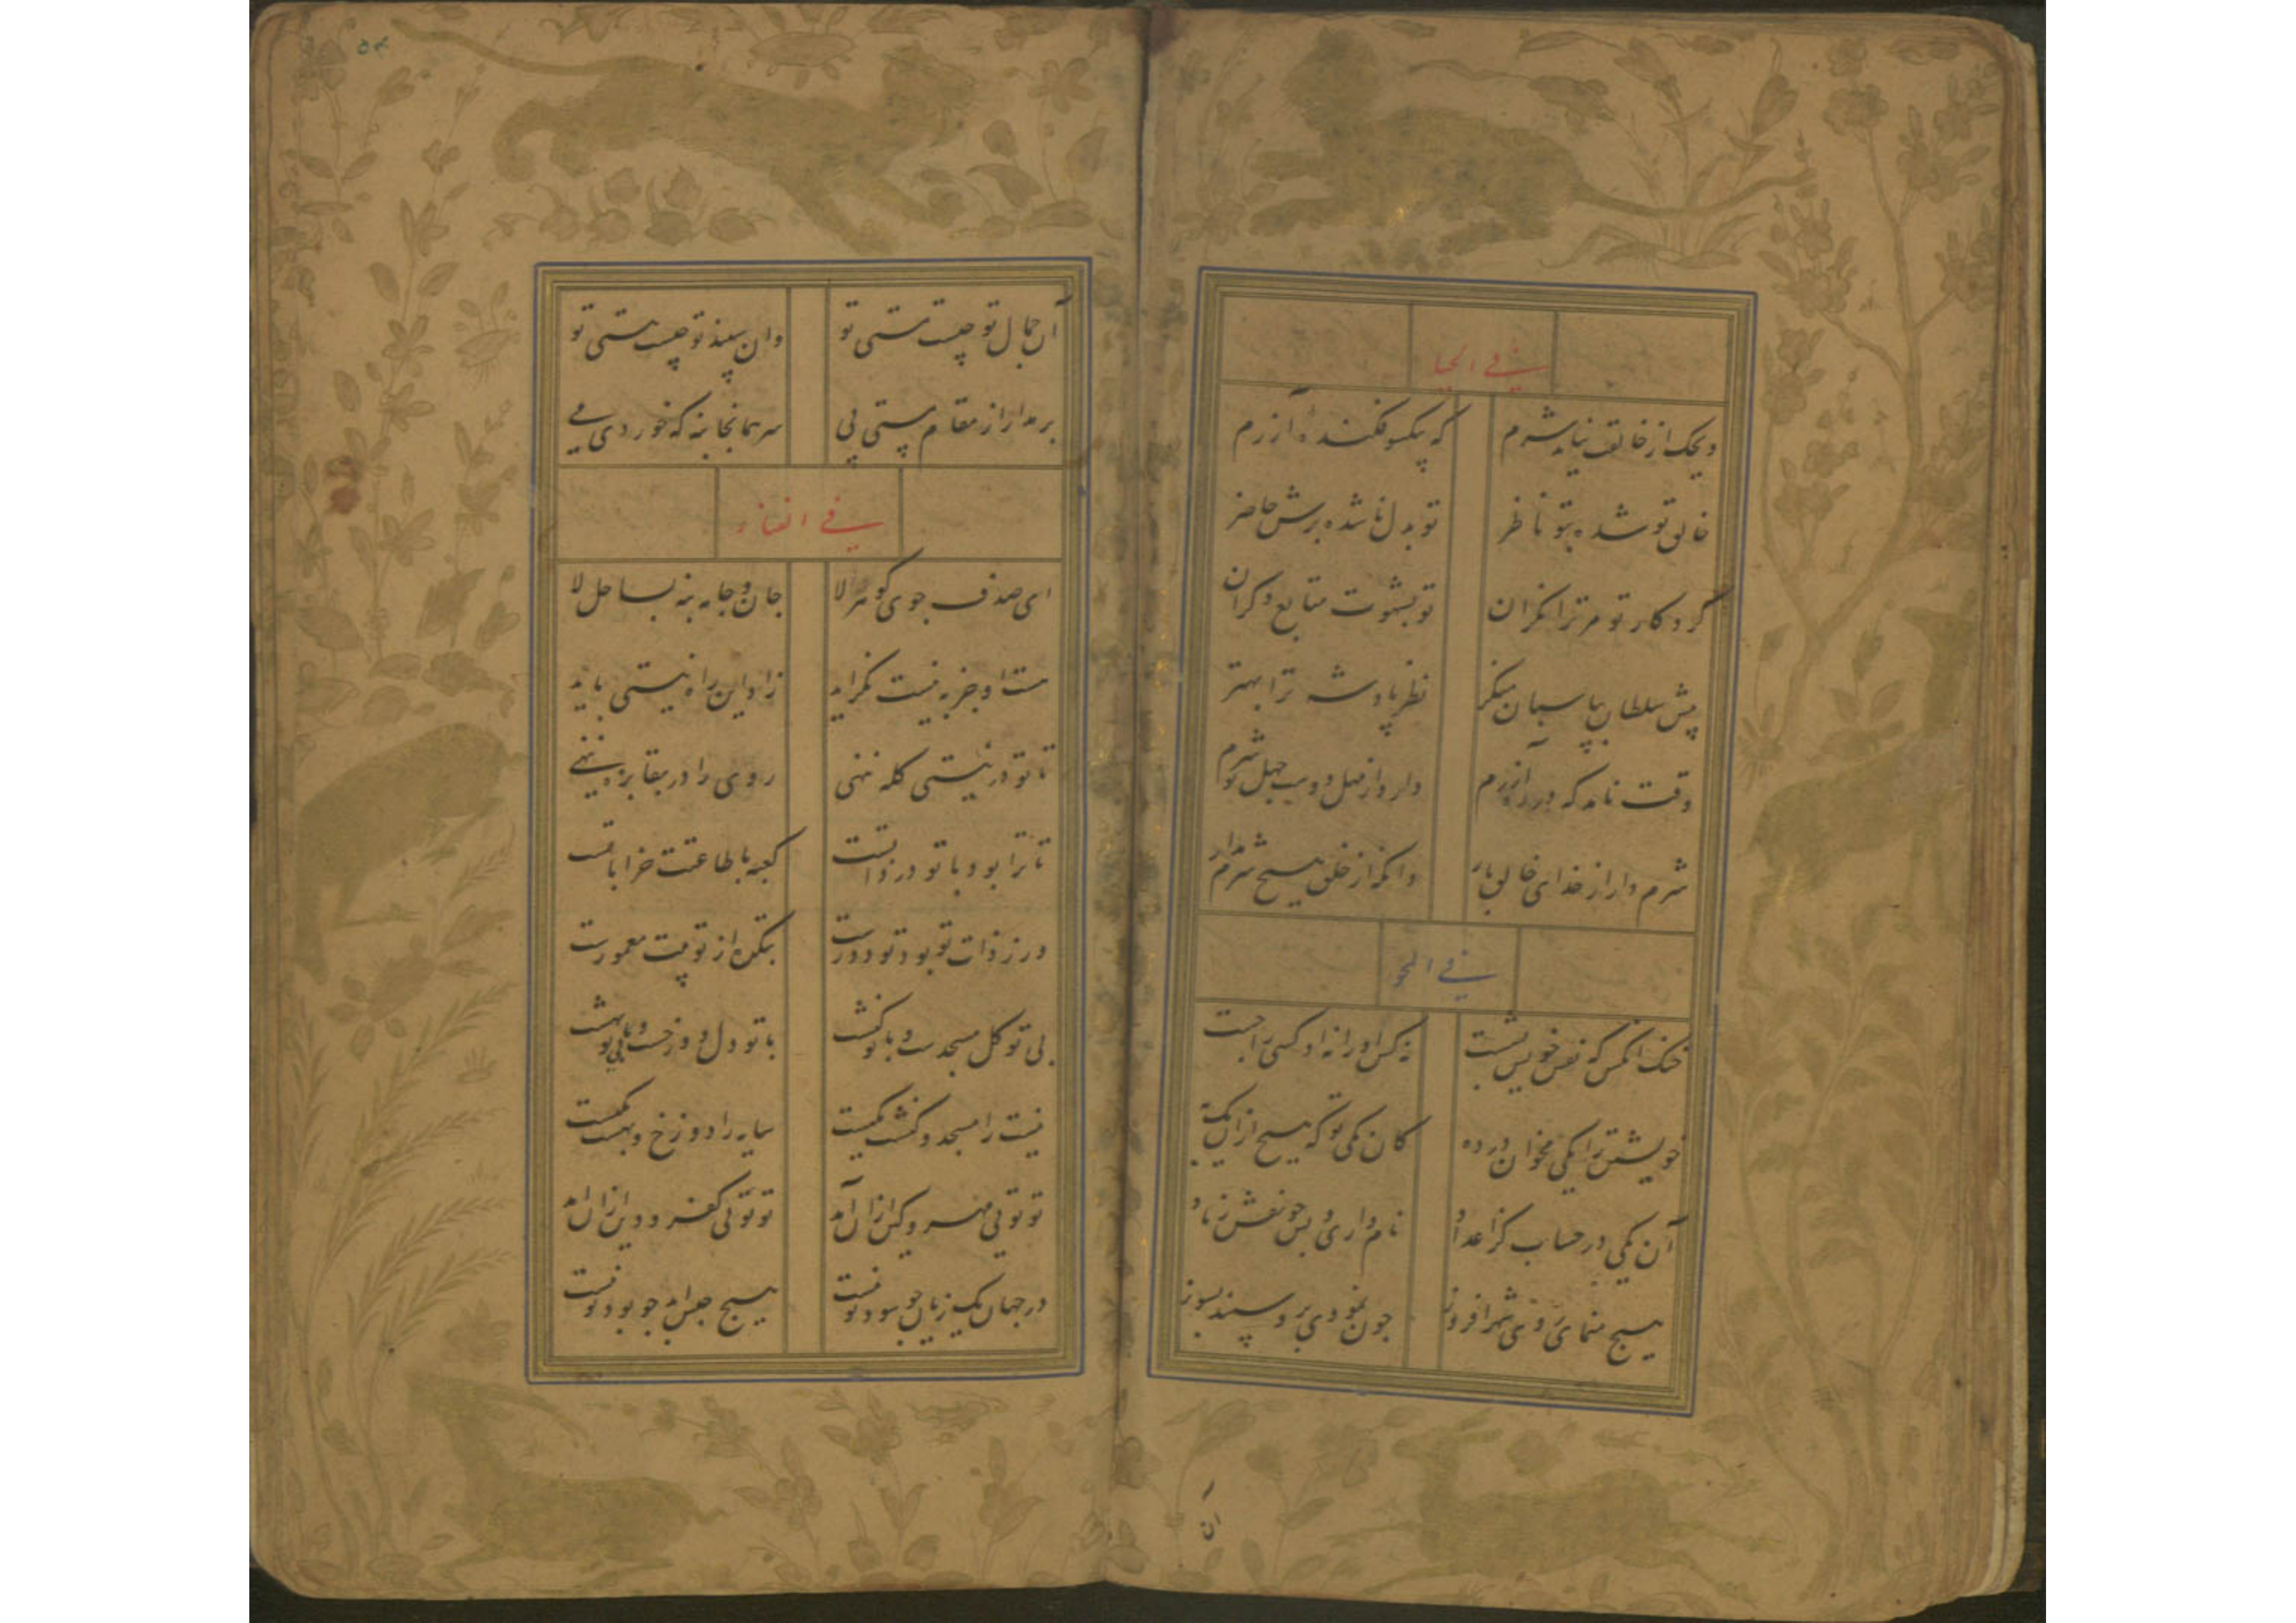 في الحيا
ویحک از خالقت نیاید شرم که بیکسو فکنده آزرم
خالق تو شده بتو ناظر تو بدل ناشده برش حاضر
کردکار تو مر ترا نکران تو بشهوت متابع دکران
پیش سلطان بپاسبان منکر نظر پادشه ترا بهتر
وقت نامد که دررد آزرم دارد از مهل و وسیب جهل تو شرم
شرم دار از خدای خالق بار وانکه از خلق هیچ شرم مدار
في المحو
خنک آنکس که نقش خویش بشست نه کس او را نه او کسی را جست
خویشتن را یکی مخوان در ده کان یکی تو که هیچ ازان یک به
آن یکی در حساب کز اعداد نام داری و بس جو نقش زناد
هیچ منمای روی شهرافروز جون نمودی برو سپند بسوز
آن جمال تو چیست مستی تو وان سپند تو چیست هستی تو
برمدار از مقام پستی پی سر همانجا بنه که خوردی می
في الفناء
ای صدف جوی کوهر الا جان و جامه بنه بساحل لا
هست او جز به نیست نکراید زاد این راه نیستی باید
تا تو در نیستی کله ننهی روی را در بقا بره ننهی
تا ترا بود با تو در ذاتست کعبه با طاعتت خراباتست
ور ز ذات تو بود تو دورست بتکده از تو بیت معمورست
بی تو کل مسجدست و با تو کنشت با تو دل دوزخست و بی تو بهشت
نیست را مسجد و کنشت یکیست سایه را دوزخ و بهشت یکیست
تو توئی مهر و کین ازان آمد تو توئی کفر و دین ازان آمد
در جهان یک زیان جو سود تو نیست هیچ حبس ابد جو بود تو نیست
آن